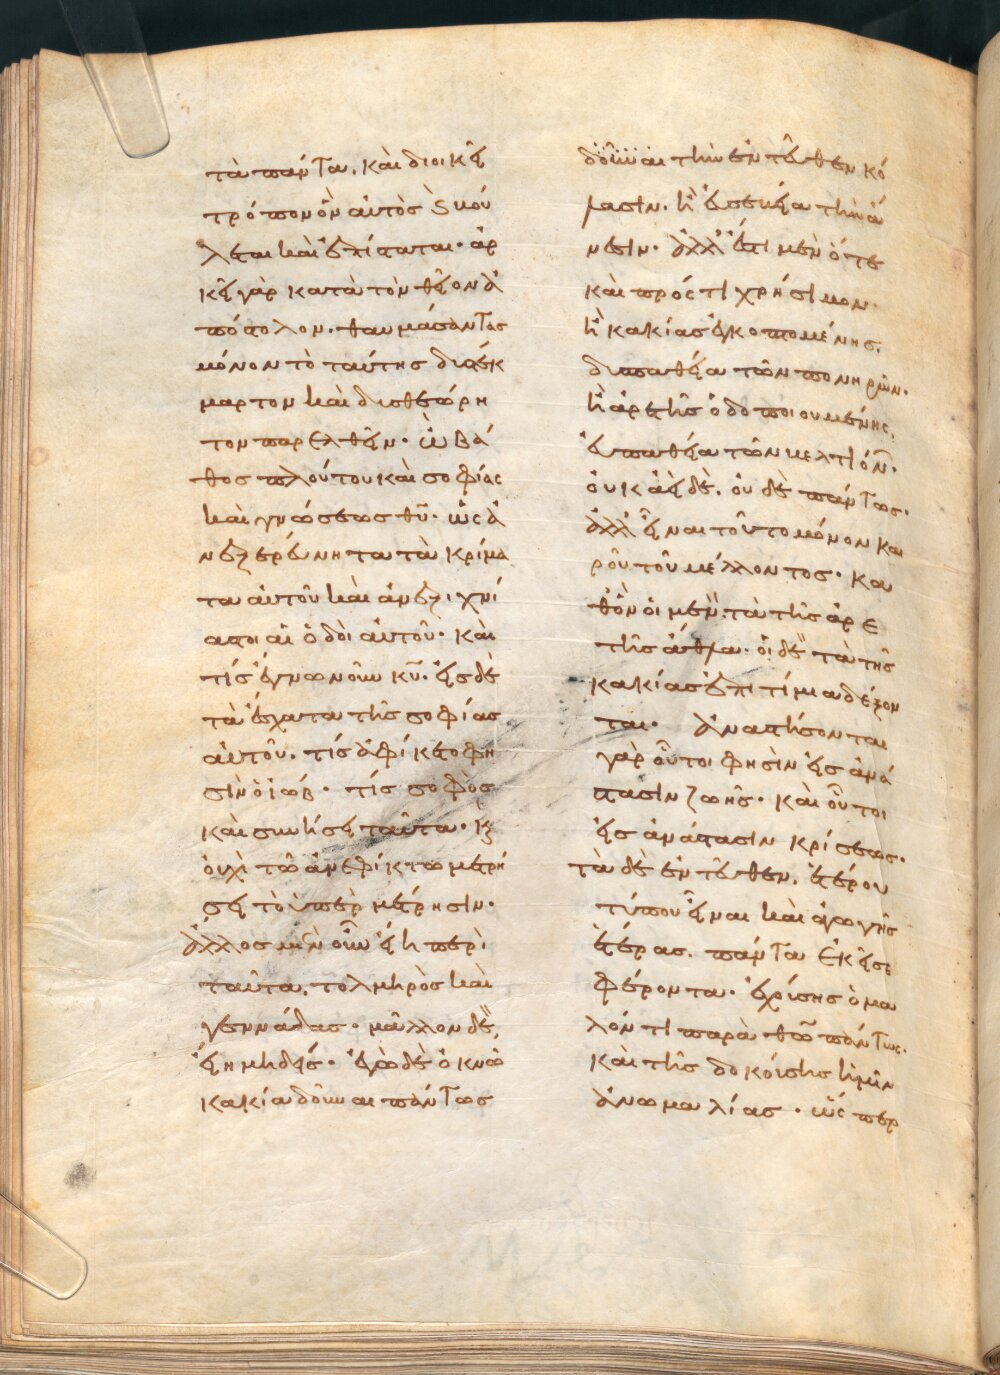 τὰ πάντα. καὶ διοικεῖ
τρόπον ὃν αὐτὸς βού
λεται καὶ ἐπίσταται· ἀρ
κεῖ γὰρ κατὰ τὸν θεῖον ἀ
πόστολον. θαυμάσαντας
μόνον τὸ ταύτης διέκ
μαρτον καὶ δυσθεώρη
τον παρελθεῖν· ὦ βά
θος πλούτου καὶ σοφίας
καὶ γνώσεως θῦ· ὡς ἀ
νεξερεύνητα τὰ κρίμα
τα αὐτοῦ καὶ ἀνεξιχνί
αστοι αἱ ὁδοὶ αὐτοῦ· καὶ
τίς ἔγνω νοῦν κῦ· εἰς δὲ
τὰ ἔσχατα τῆς σοφίας
αὐτοῦ. τίς ἀφίκετο φη
σὶν ὁ ἰὼβ· τίς σοφὸς
καὶ συνήσει ταῦτα· κ(αὶ)
οὐχὶ τῶ ἀνεφίκτω μετρή
σει τὸ ὑπὲρ μέτρησιν·
ἄλλος μὲν οὖν εἴη περὶ
ταῦτα. τολμηρὸς καὶ
γεννάδας· μᾶλλον δὲ,
εἴη μηδείς· ἐγὼ δὲ ὀκνῶ
κακία δοῦναι πάντως
δοῦναι τὴν ἐντεῦθεν κό
λασιν· ἢ εὐσεβεία τὴν ἄ
νεσιν· ἀλλ' ἔστι μὲν ὅτε
καὶ πρός τι χρήσιμον·
ἢ κακίας ἐγκοπτομένης.
δυσπαθεία τῶν πονηρῶν·
ἢ ἀρετῆς ὁδοποιουμένης.
εὐπαθεία τῶν βελτιόνων·
οὐκ ἀεὶ δὲ. οὐδὲ πάντως·
ἀλλ' εἶναι τοῦτο μόνον και
ροῦ τοῦ μέλλοντος· κα
θ' ὃν οἱ μὲν. τὰ τῆς ἀρε
τῆς ἆθλα· οἱ δὲ τὰ τῆς
κακίας ἐπιτίμια δέξον
ται· ἀναστήσονται
γὰρ οὗτοι φησὶν εἰς ἀνά
στασιν ζωῆς· καὶ οὗτοι
εἰς ἀνάστασιν κρίσεως·
τὰ δὲ ἐντεῦθεν. ἑτέρου
τύπου εἶναι καὶ ἀγωγῆς
ἑτέρας. πάντα ἐκεῖσε
φέροντα· ἐχούσης ὁμα
λόν τι παρὰ θῶ πάντως·
καὶ τῆς δοκούσης ἡμῖν
ἀνωμαλίας· ὥσπερ